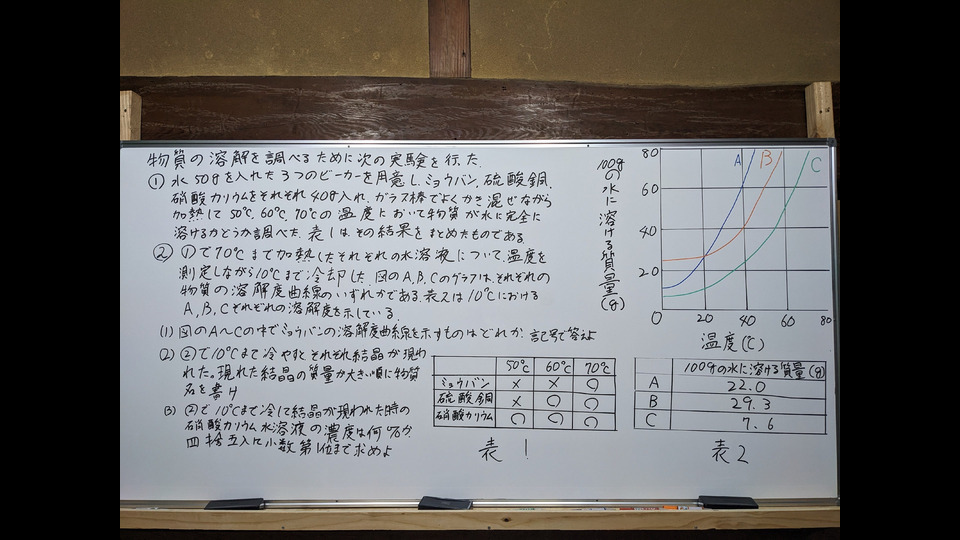 物質の溶解を調べるために次の実験を行った
① 水50gを入れた3つのビーカーを用意し、ミョウバン、硫酸銅、
硝酸カリウムをそれぞれ40g入れ、ガラス棒でよくかき混ぜながら
加熱して50℃、60℃、70℃の温度において物質が水に完全に
溶けるかどうか調べた。表1はその結果をまとめたものである
② ①で70℃まで加熱したそれぞれの水溶液について、温度を
測定しながら10℃まで冷却した。図のA,B,Cのグラフは、それぞれの
物質の溶解度曲線のいずれかである。表2は10℃における
A,B,Cそれぞれの溶解度を示している。
(1) 図のA〜Cの中でミョウバンの溶解度曲線を示すものはどれか。記号で答えよ
(2) ②で10℃まで冷やすとそれぞれ結晶が現わ
れた。現れた結晶の質量が大きい順に物質
名を書け
(3) ②で10℃まで冷して結晶が現われた時の
硝酸カリウム水溶液の濃度は何%か、
四捨五入し小数第1位まで求めよ
100gの水に溶ける質量(g)
80
60
40
20
0
20
40
60
80
A
B
C
温度(℃)
50℃ 60℃ 70℃
ミョウバン × × ○
硫酸銅 × ○ ○
硝酸カリウム ○ ○ ○
表1
100gの水に溶ける質量(g)
A 22.0
B 29.3
C 7.6
表2